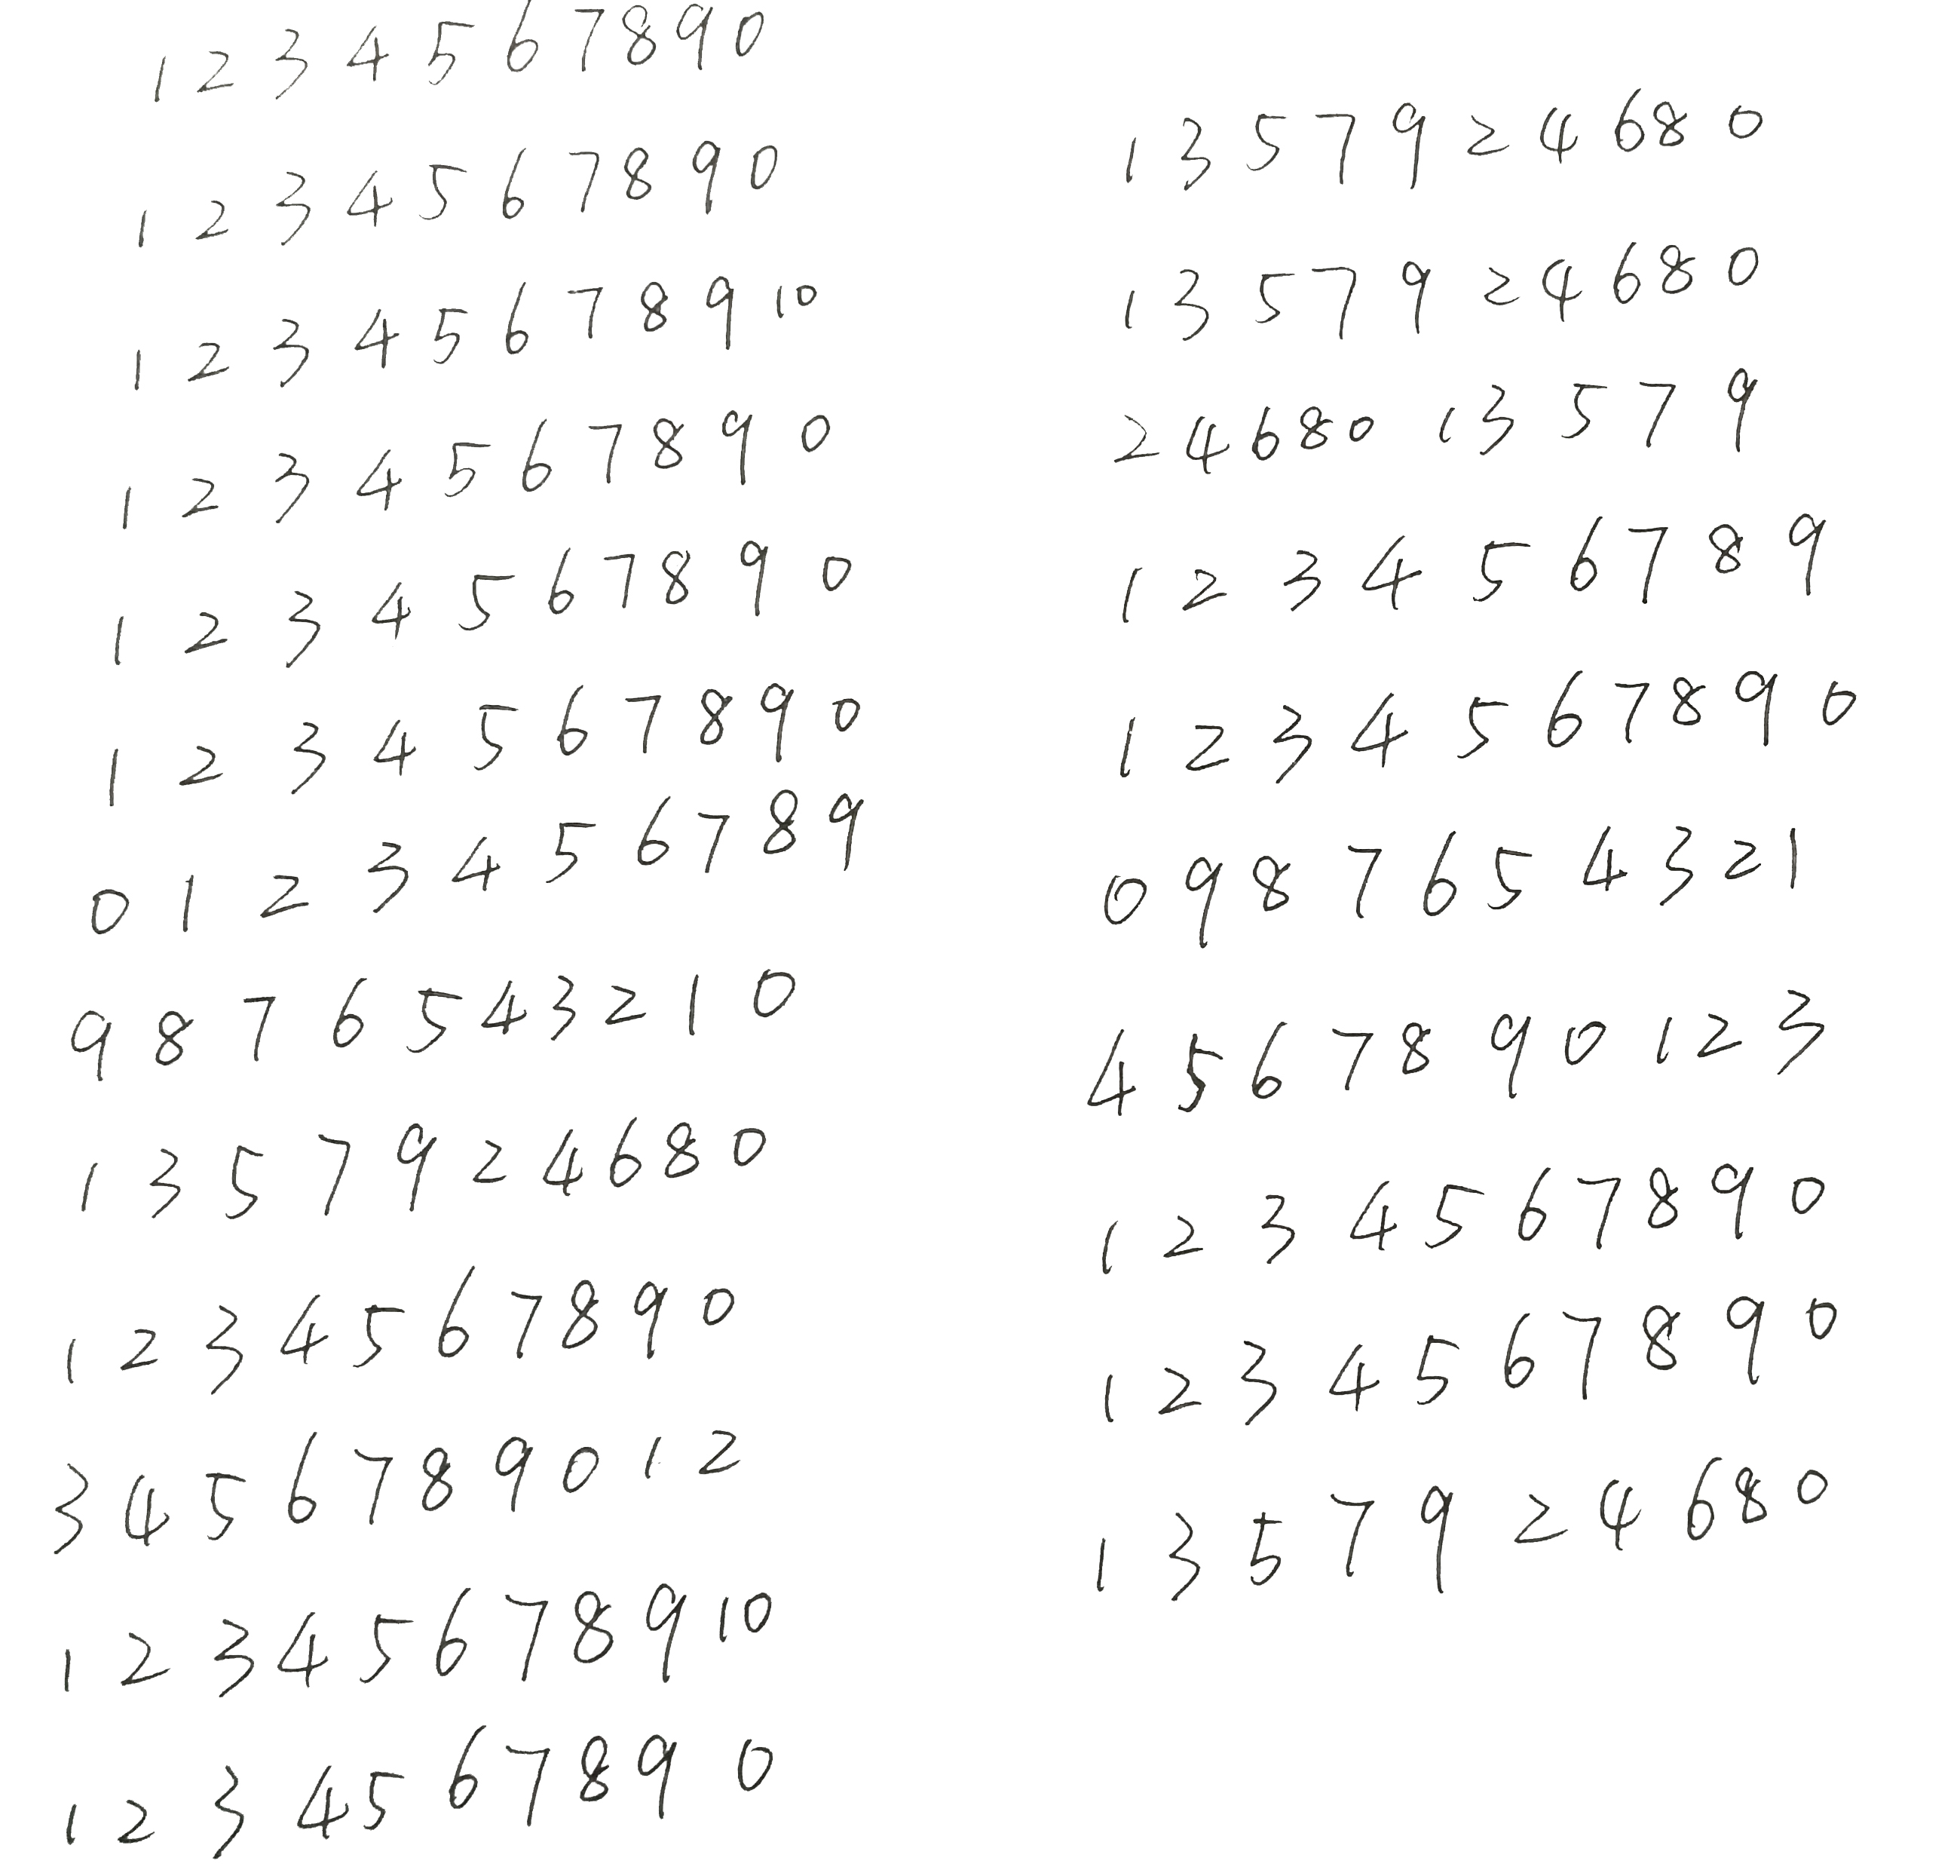 1 2 3 4 5 6 7 8 9 0
1 2 3 4 5 6 7 8 9 0
1 2 3 4 5 6 7 8 9 10
1 2 3 4 5 6 7 8 9 0
1 2 3 4 5 6 7 8 9 0
1 2 3 4 5 6 7 8 9 0
0 1 2 3 4 5 6 7 8 9
9 8 7 6 5 4 3 2 1 0
1 3 5 7 9 2 4 6 8 0
1 2 3 4 5 6 7 8 9 0
3 4 5 6 7 8 9 0 1 2
1 2 3 4 5 6 7 8 9 10
1 2 3 4 5 6 7 8 9 0
1 3 5 7 9 2 4 6 8 0
1 3 5 7 9 2 4 6 8 0
2 4 6 8 0 1 3 5 7 9
1 2 3 4 5 6 7 8 9
1 2 3 4 5 6 7 8 9 0
0 9 8 7 6 5 4 3 2 1
4 5 6 7 8 9 0 1 2 3
1 2 3 4 5 6 7 8 9 0
1 2 3 4 5 6 7 8 9 0
1 3 5 7 9 2 4 6 8 0